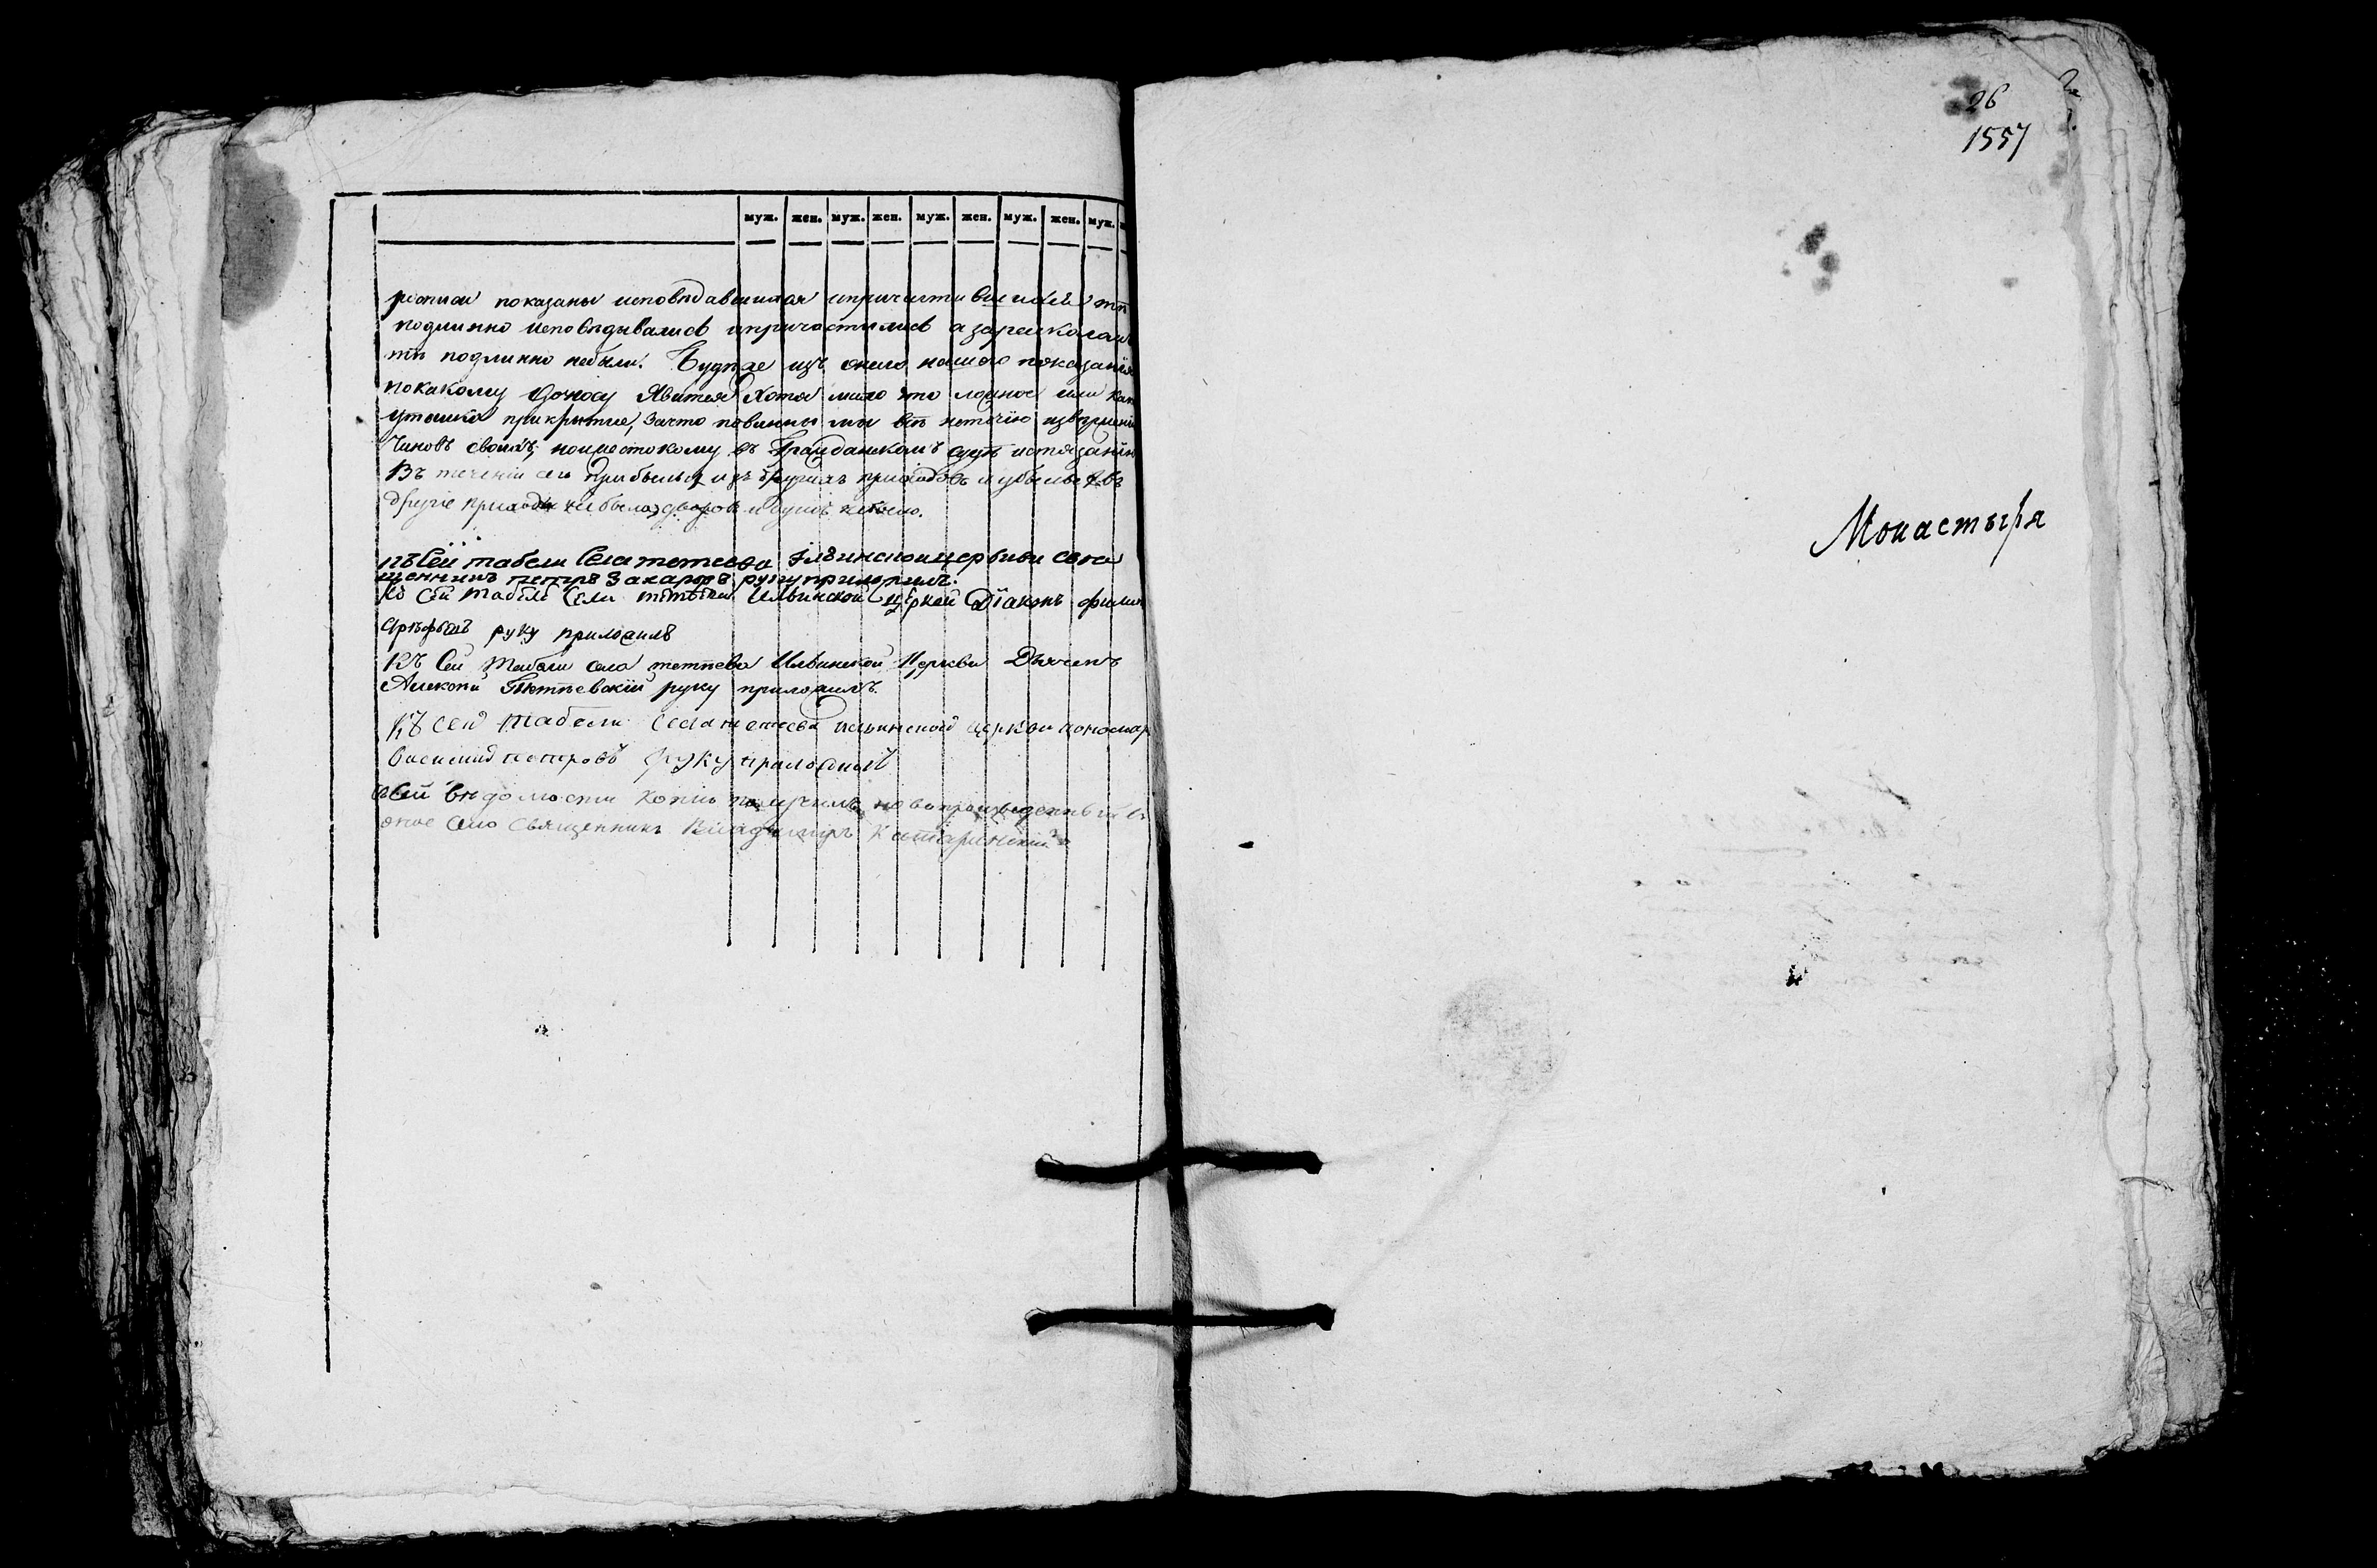 муж. жен. муж. жен. муж. жен. муж. жен. муж.
росписи показаны исповѣдавшимися и причасти
подлинно исповѣдывались и причастились а
тѣ подлинно небыли. Будеже изъ онаго нашего показанія
покакому доносу явится хотя мало что ложное или
утайка прикрытие, зачто повинны мы
чиновъ своихъ, ножестокому въ Гражданскомъ судѣ истязанію
Въ теченіи сего прибылыхъ изъ другихъ приходовъ и убылыхъ въ
другіе приходы небыло дворовъ и душъ
къ сей табели села тетеева Ильинской церкви свя
щенникъ петръ Захаровъ руку приложилъ.
Ко сей табеле села Ильинской церкви Діаконъ
Арефьевъ руку приложилъ
Къ сей табели села тетѣева Ильинской Церкви Дьячекъ
Алексѣй Тетѣевскій руку приложилъ.
Къ сей табели села тетеева ильинской церкви пономар
василий петровъ руку приложилъ
сей вѣдомости копию получилъ новопроизведенный
оное село Священникъ Владимиръ
26
1557
Монастыря